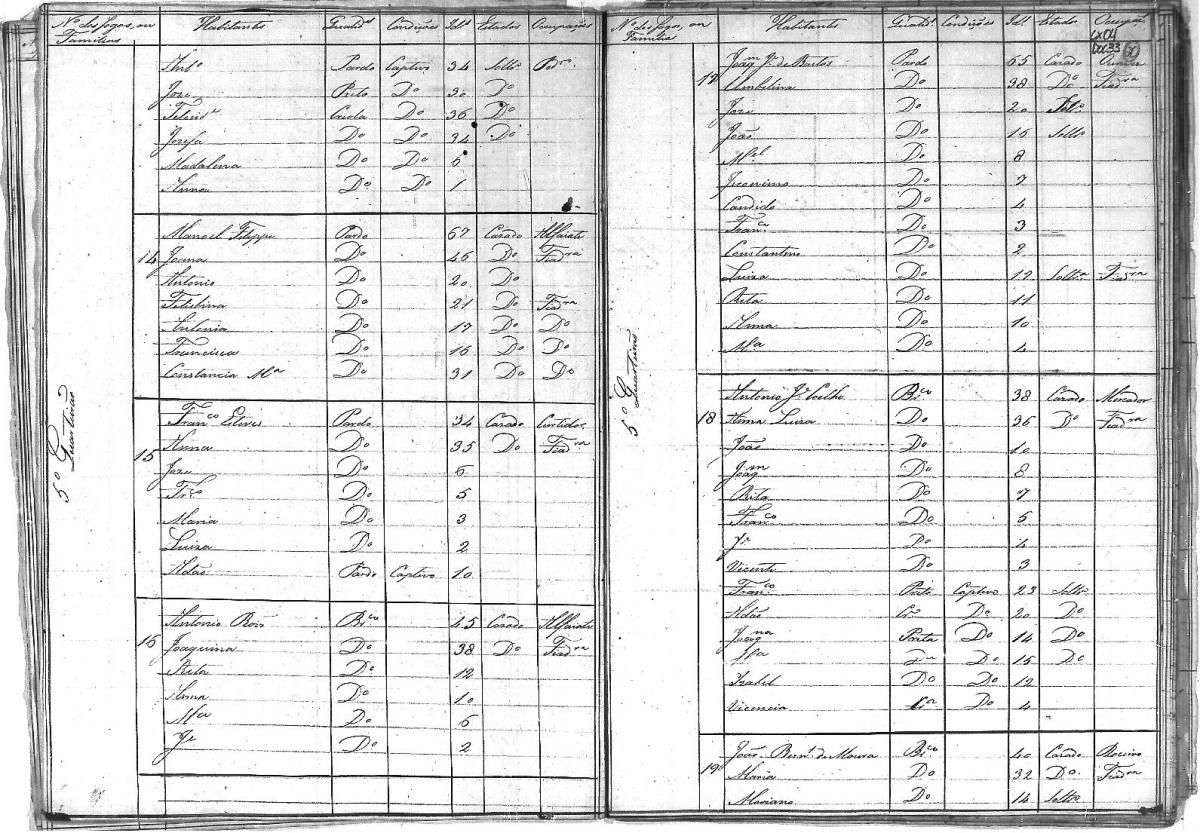 Nº dos fogos, ou Familias Habitantes Qualid.es Condições Id.e Estados Occupações
Pardo Captivo 34 Solt.o
Joze Preto Do 30 Do
Criola Do 36 Do
Josefa Do Do 34 Do
Madalena Do Do 6
Anna Do Do 1
Manoel Felippe Pardo 67 Cazado Alfaiate
14 Joana Do 46 Do Fiad.ra
Antonio Do 20 Do
Felisbina Do 21 Do Fiad.ra
Antonia Do 17 Do Do
Francisca Do 16 Do Do
Constancia M.a Do 31 Do Do
5º Quarteirão
Fran.co Esteves Pardo 34 Cazado Curtidor
15 Anna Do 35 Do Fiad.ra
Joze Do 6
Do 5
Maria Do 3
Luiza Do 2
Adão Pardo Captivo 10
Antonio Roiz Br.co 45 Cazado Alfaiate
16 Joaquina Do 38 Do Fiad.ra
Rita Do 12
Anna Do 10
M.a Do 6
J.e Do 2
Nº dos fogos, ou Familia Habitantes Qualid.e Condições Id.e Estado Occupaç.
Doc 33
17 Joaq.m J.e de Bastos Pardo 65 Cazado
Umbelina Do 38 Do Fiad.ra
Joze Do 20 Sol.o
João Do 16 Solt.o
M.el Do 8
Jeronimo Do 7
Candido Do 4
Fran.ca Do 3
Constantino Do 2
Luiza Do 12 Solt.a Fiad.ra
Rita Do 11
Anna Do 10
M.a Do 4
5º Quarteirão
Antonio J.e Coelho Br.co 38 Cazado Mercador
18 Anna Luiza Do 36 Do Fiad.ra
João Do 10
Joaq.m Do 8
Rita Do 7
Fran.co Do 5
J.e Do 4
Vicente Do 3
Fran.co Preto Captivo 23 Solt.o
Adão Cr. Do 20 Do
Joaq.na Preta Do 14 Do
M.a Do 15 Do
Izabel Do Do 12
Vicencia Cr.a Do 4
João Bern.o de Moura Br.co 40 Cazado Roceiro
19 Maria Do 32 Do Fiad.ra
Mariano Do 14 Solt.o